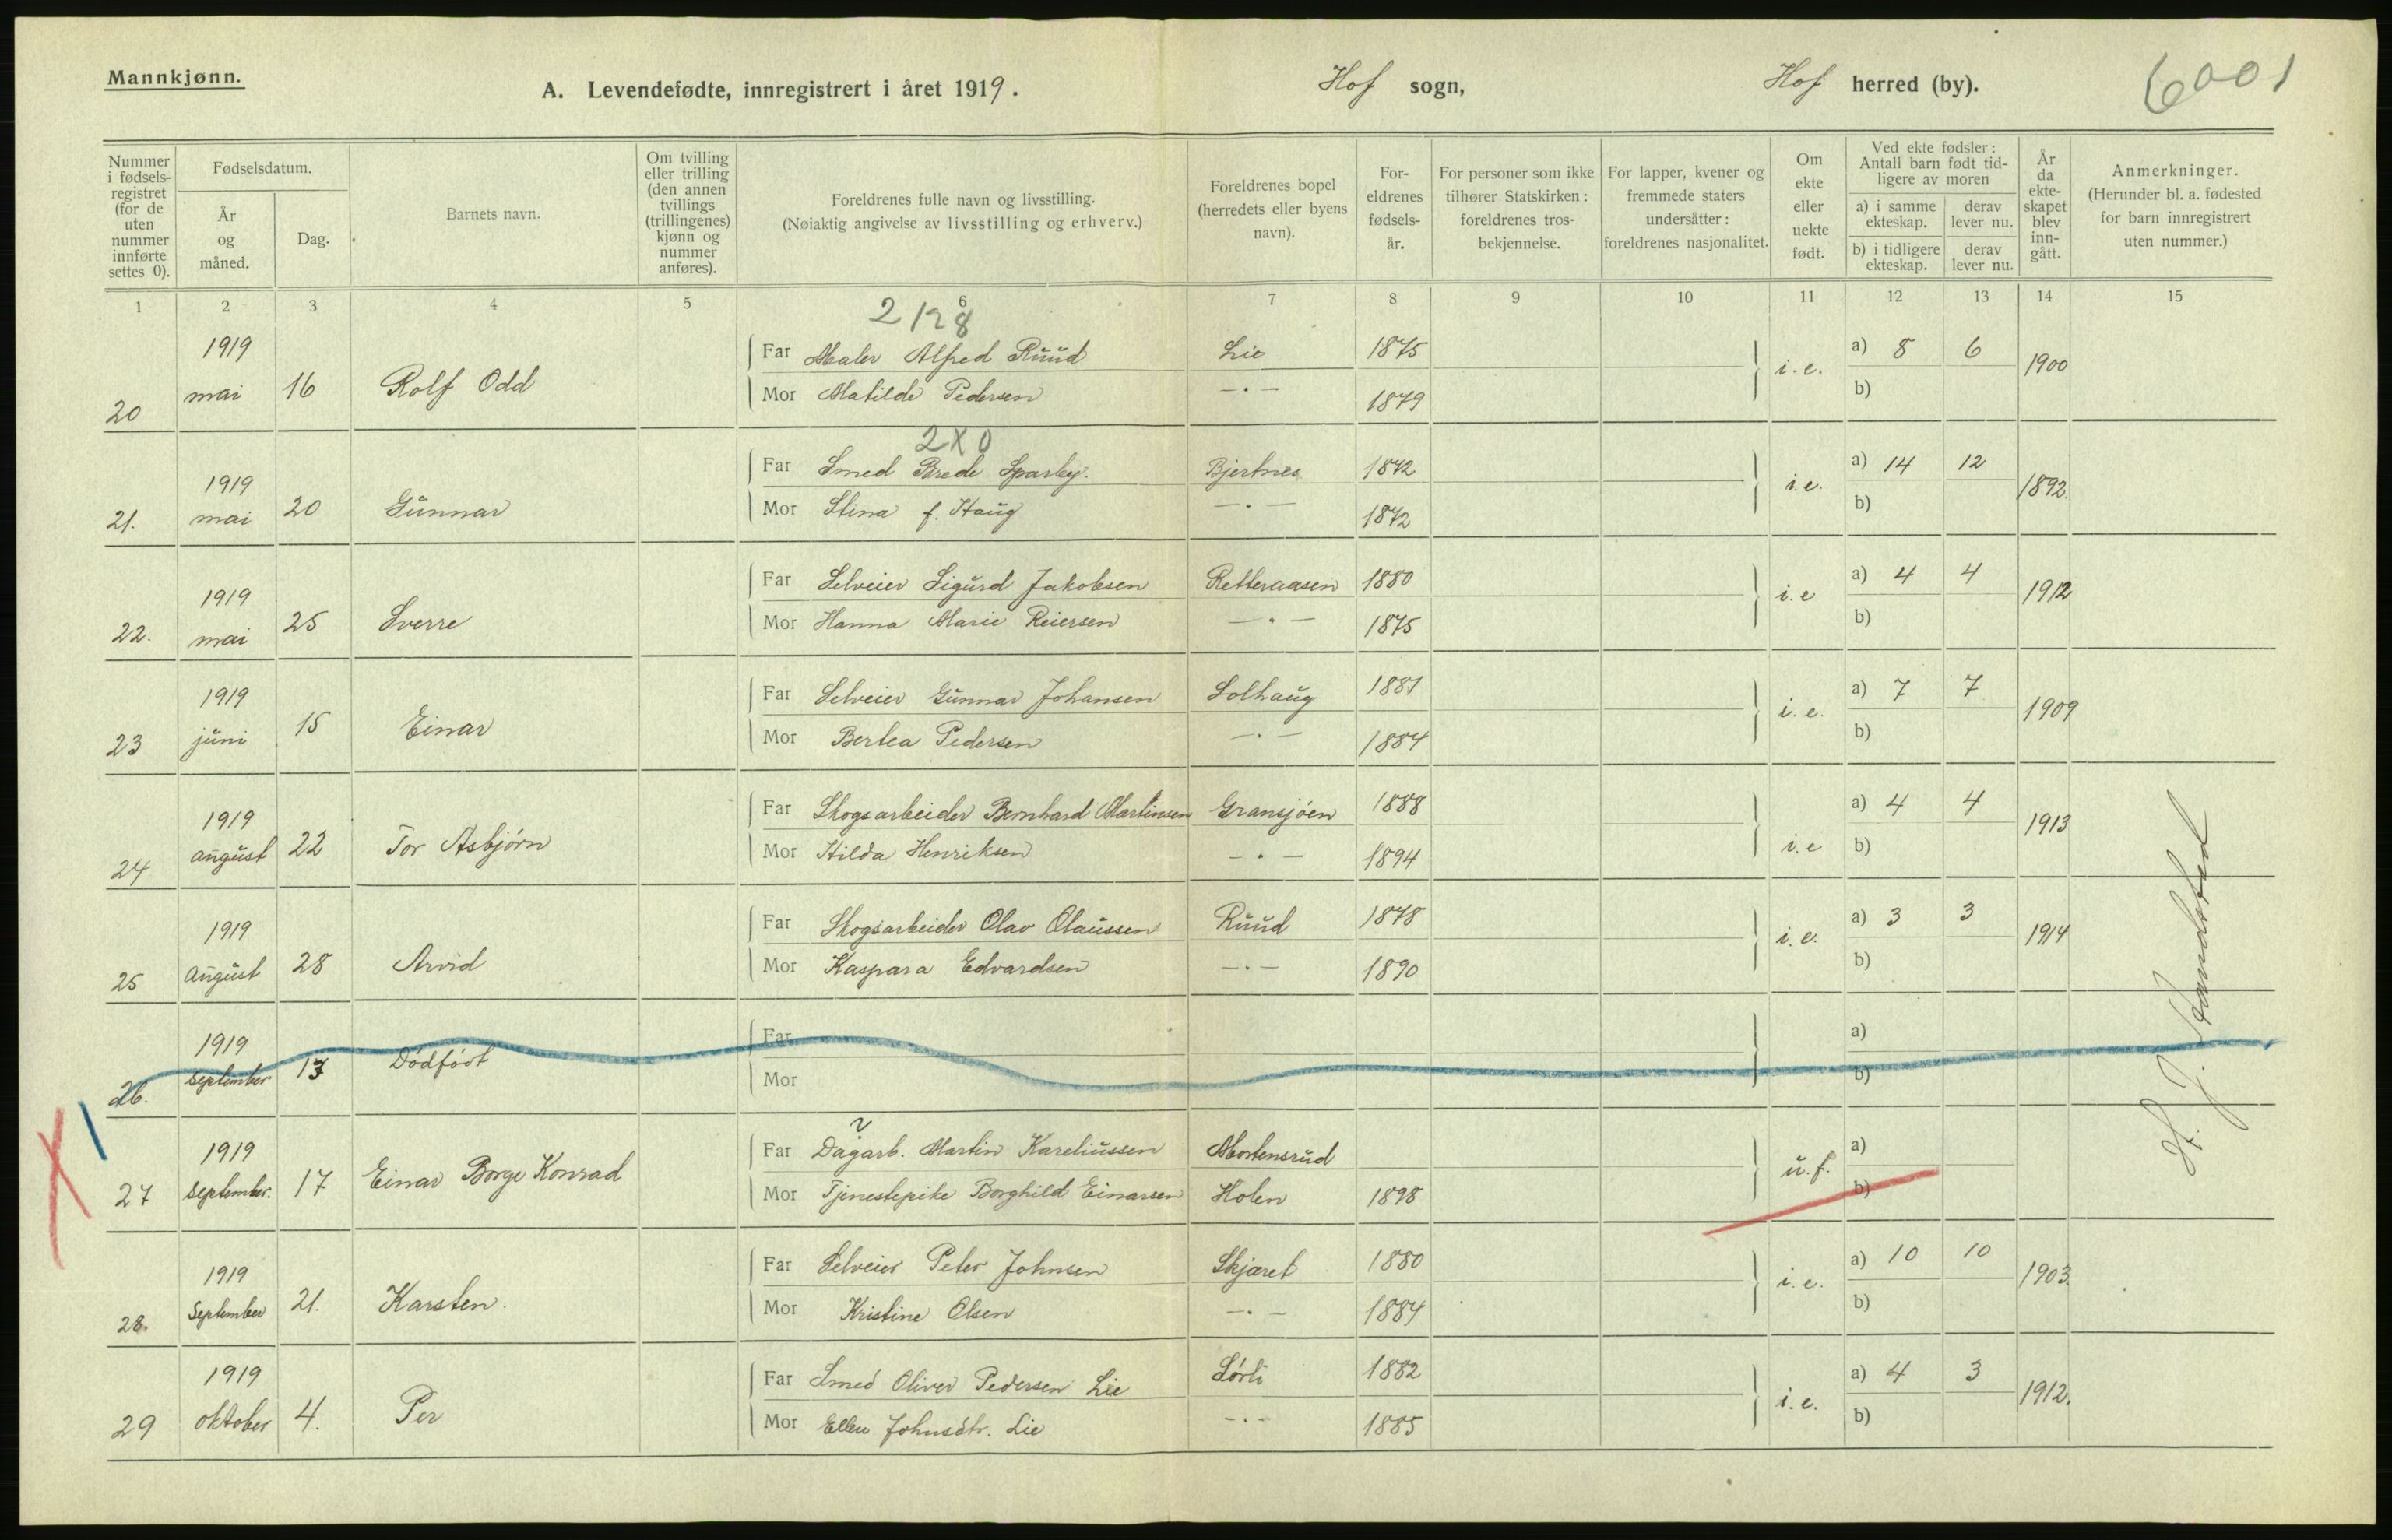 Mannkjønn.
A. Levendefødte, innregistrert i året 1919.
Hof sogn,
Hof herred (by).
6001
Nummer i fødsels- registret (for de uten nummer innførte settes 0).
Fødselsdatum.
År og måned.
Dag.
Barnets navn.
Om tvilling eller trilling (den annen tvillings (trillingenes) kjønn og nummer anføres).
Foreldrenes fulle navn og livsstilling.
(Nøiaktig angivelse av livsstilling og erhverv.)
Foreldrenes bopel (herredets eller byens navn).
For- eldrenes fødsels- år.
For personer som ikke tilhører Statskirken: foreldrenes tros- bekjennelse.
For lapper, kvener og fremmede staters undersåtter: foreldrenes nasjonalitet.
Om ekte eller uekte født.
Ved ekte fødsler: Antall barn født tid- ligere av moren
a) i samme ekteskap.
derav lever nu.
b) i tidligere ekteskap.
derav lever nu.
År da ekte- skapet blev inn- gått.
Anmerkninger.
(Herunder bl. a. fødested for barn innregistrert uten nummer.)
1 2 3 4 5 6 7 8 9 10 11 12 13 14 15
2128
20 1919 mai 16 Rolf Odd
Far Maler Alfred Ruud Lie 1875 i. e. a) 8 6 1900
Mor Matilde Pedersen —·— 1879 b)
2X0
21. 1919 mai 20 Gunnar
Far Smed Brede Sparby. Bjertnes 1872 i.e. a) 14 12 1892.
Mor Stina f. Haug —·— 1872 b)
22. 1919 mai 25 Sverre
Far Selveier Sigurd Jakobsen Retteraasen 1880 i.e a) 4 4 1912
Mor Hanna Marie Reiersen —·— 1875 b)
23 1919 juni 15 Einar
Far Selveier Gunnar Johansen Solhaug 1881 i. e. a) 7 7 1909
Mor Bertea Pedersen —·— 1884 b)
24 1919 august 22 Tor Asbjørn
Far Skogsarbeider Bernhard Martinsen Gransjøen 1888 i.e a) 4 4 1913
Mor Hilda Henriksen —·— 1894 b)
25 1919 August 28 Arvid
Far Skogsarbeider Olav Olaussen Ruud 1878 i. e. a) 3 3 1914
Mor Kaspara Edvardsen —·— 1890 b)
26. 1919 september 13 Dødfødt
Far a)
Mor b)
27 1919 september. 17 Einar Borge Konrad
Far Dagarb. Martin Kareliussen Mortensrud u. f. a)
Mor Tjenestepike Borghild Einarsen Holen 1898 b)
28. 1919 September 21. Karsten.
Far Selveier Peter Johnsen Skjæret 1880 i. e. a) 10 10 1903.
Mor Kristine Olsen —·— 1884 b)
29 1919 oktober 4. Per
Far Smed Oliver Pedersen Lie Sørli 1882 i. e. a) 4 3 1912.
Mor Ellen Johnsdtr. Lie —·— 1885 b)